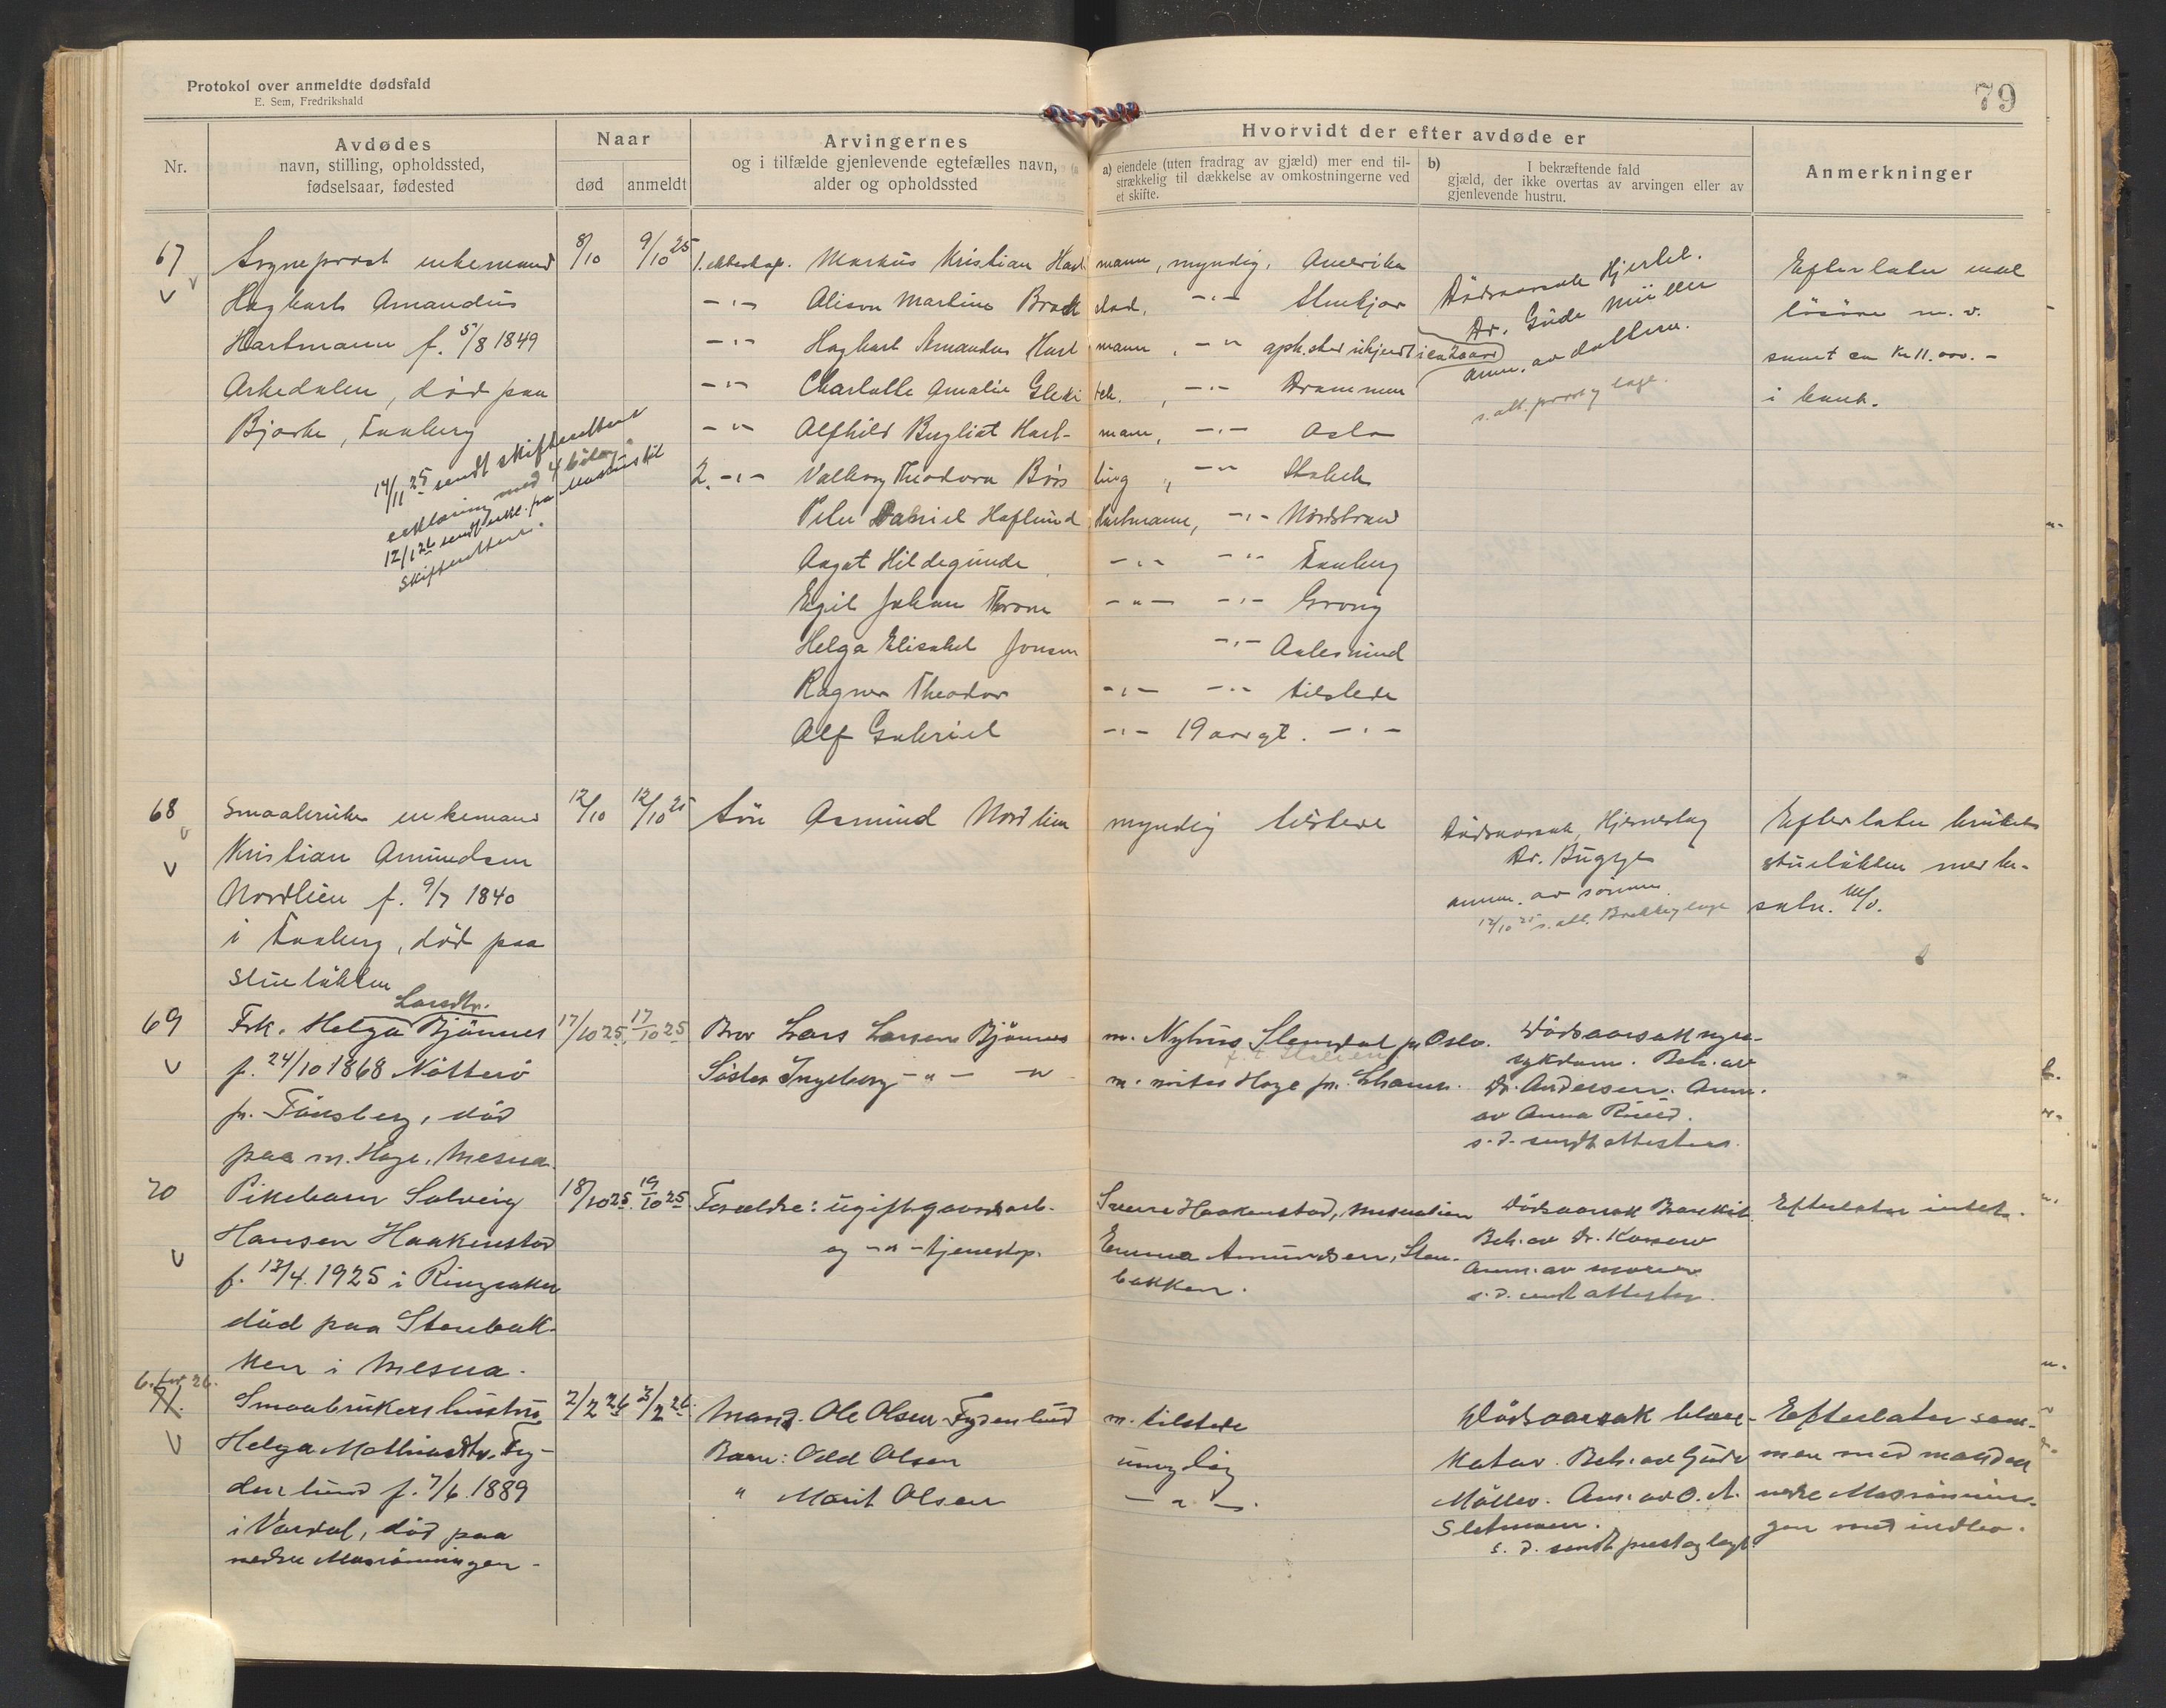 Protokol over anmeldte dødsfald
E. Sem, Fredrikshald
79
Nr.
Avdødes
navn, stilling, opholdssted,
fødselsaar, fødested
Naar
død
anmeldt
Arvingernes
og i tilfælde gjenlevende egtefælles navn,
alder og opholdssted
Hvorvidt der efter avdøde er
a) eiendele (uten fradrag av gjæld) mer end til-
strækkelig til dækkelse av omkostningerne ved
et skifte.
b) I bekræftende fald
gjæld, der ikke overtas av arvingen eller av
gjenlevende hustru.
Anmerkninger
67
Sogneprest enkemand
Hagbart Amandus
Hartmann f. 5/8 1849
Askedalen, død paa
Bjørke, Faaberg
14/11 25 sendt skifteretten
erklæring med 4 bilag
12/1 26 sendt erkl. fra Markus til
Skifteretten.
8/10
9/10 25
1. ekteskap. Markus Kristian Hartmann, myndig, Amerika
-"- Martine -"- Stenkjær
-"- Hagbart Amandus Hartmann, -"- opholdssted ukjendt
-"- Charlotte Amalie -"- Drammen
-"- Alfhild Hartmann, -"- Oslo
2. -"- Valborg Theodora -"-
Peter Daniel Haflund Hartmann, -"- Nordstrand
Aagot Hildegunde -"- -"- Faaberg
Egil Johan -"- -"- Grong
Helga Elisabet Jonsen -"- Aalesund
Ragnar Theodor -"- -"- tilstede
Alf Gabriel -"- 19 aar gl. -"-
Dødsaarsak Hjertel.
Dr. Gude Müller
anm. av datteren.
s. att. prest og lage.
Efterlater endel
løsøre m. v.
samt ca kr 11.000.-
i bank.
68
Smaabruker enkemand
Kristian Amundsen
Nordlien f. 9/7 1840
i Faaberg, død paa
Stuelykken
12/10
12/10 25
Søn Asmund Nordlien myndig tilstede
Dødsaarsak, Hjerneslag
Dr. Bugge
anm. av sønnen.
12/10 25 s. att.
Efterlater bruket
Stuelykken med be-
sætn. m/v.
69
Frk. Helga Larsdtr. Bjønnes
f. 24/10 1868 Nøtterø
pr. Tønsberg, død
paa m. Hage, Mesna.
17/10 25.
17/10 25
Bror Lars Larsen Bjønnes m. Nyhus Slemdal pr Oslo.
Søster Ingeborg -"- -"- m. Hage pr. Lhamr.
Dødsaarsak nyre-
sykdom. Beh. av
Dr. Andersen. Anm.
av Anna Ruud.
s. d. sendt attester.
70
Pikebarn Solveig
Hansen Haakenstad
f. 12/4. 1925 i Ringsaker
død paa Stenbak-
ken i Mesna.
18/10 25.
19/10 25.
Forældre: ugift gaardsarb. Sverre Haakenstad, Mesnalien
og -"- tjenestep. Emma Amundsen, Sten-
bakken.
Dødsaarsak Bronkit
Beh. av Dr.
Anm. av moren
s. d. sendt attester.
Efterlater intet.
6. for 26.
71.
Smaabrukerhustru
Helga Mathiasdtr. Fry-
denlund f. 7/6. 1889
i Vardal, død paa
nedre
2/2 26
3/2 26.
Mand. Ole Olsen Frydenlund m. tilstede
Barn: Odd Olsen umyndig
" Marit Olsen -"-
Dødsaarsak blære-
katar. Beh. av Gude
Møller. Anm. av O. A.
Sletmoen.
s. d. sendt prest og lagt.
Efterlater sam-
men med manden
nedre
gen med indbo.